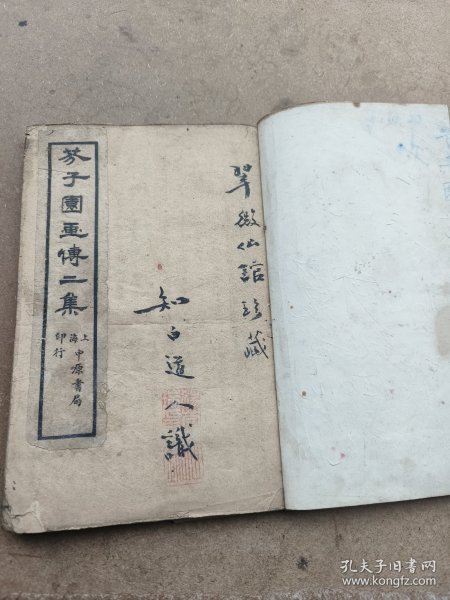 翠微仙館珍藏
知白道人識
芥子園畫傳二集
上海中原書局
印行
孔夫子旧书网
www.kongfz.com